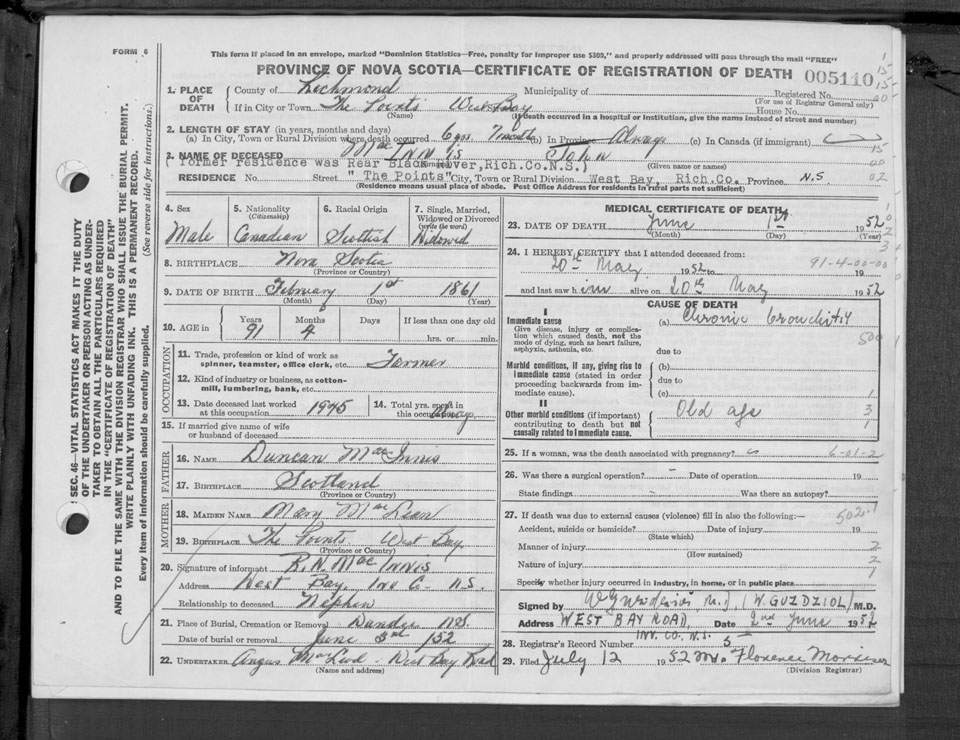 FORM 6
This form if placed in an envelope, marked "Dominion Statistics—Free, penalty for improper use $300," and properly addressed will pass through the mail "FREE"
PROVINCE OF NOVA SCOTIA—CERTIFICATE OF REGISTRATION OF DEATH 005110
1. PLACE OF DEATH County of Richmond Municipality of Registered No.
(For use of Registrar General only)
If in City or Town The Points West Bay House No.
(Name) (If death occurred in a hospital or institution, give the name instead of street and number)
2. LENGTH OF STAY (in years, months and days)
(a) In City, Town or Rural Division where death occurred 6 yrs. 7 month (b) In Province Always (c) In Canada (if immigrant)
3. NAME OF DECEASED MacInnis John
former residence was Rear Black River, Rich.Co.N.S., (Given name or names)
RESIDENCE No. Street "The Points" City, Town or Rural Division West Bay, Rich.Co. Province N.S.
(Residence means usual place of abode. Post Office Address for residents in rural parts not sufficient)
4. Sex Male
5. Nationality (Citizenship) Canadian
6. Racial Origin Scottish
7. Single, Married, Widowed or Divorced (write the word) Widowed
8. BIRTHPLACE Nova Scotia
(Province or Country)
9. DATE OF BIRTH February 1st 1861
(Month) (Day) (Year)
10. AGE in Years 91 Months 4 Days If less than one day old hrs. or min.
OCCUPATION
11. Trade, profession or kind of work as spinner, teamster, office clerk, etc. Farmer
12. Kind of industry or business, as cotton-mill, lumbering, bank, etc.
13. Date deceased last worked at this occupation 1945
14. Total yrs. spent in this occup. Always
15. If married give name of wife or husband of deceased
FATHER
16. NAME Duncan MacInnis
17. BIRTHPLACE Scotland
(Province or Country)
MOTHER
18. MAIDEN NAME Mary MacLean
19. BIRTHPLACE The Points West Bay
(Province or Country)
20. Signature of informant R.N. MacInnis
Address West Bay, Inv Co. N.S.
Relationship to deceased Nephew
21. Place of Burial, Cremation or Removal Dundee N.S.
Date of burial or removal June 3rd /52
22. UNDERTAKER Angus MacLeod - West Bay Road
(Name and address)
MEDICAL CERTIFICATE OF DEATH
23. DATE OF DEATH June 1st 1952
(Month) (Day) (Year)
24. I HEREBY CERTIFY that I attended deceased from:
20th May 1952 to 19
91-4-00-00
and last saw him alive on 20th May 1952
CAUSE OF DEATH
I
Immediate cause (a) Chronic bronchitis
Give disease, injury or complication which caused death, not the mode of dying, such as heart failure, asphyxia, asthenia, etc.
due to
Morbid conditions, if any, giving rise to immediate cause (stated in order proceeding backwards from immediate cause). (b)
due to
(c)
II
Other morbid conditions (if important) contributing to death but not causally related to immediate cause. Old age
25. If a woman, was the death associated with pregnancy? 6-01-2
26. Was there a surgical operation? - Date of operation 19
State findings - Was there an autopsy?
27. If death was due to external causes (violence) fill in also the following:— 502.1
Accident, suicide or homicide? Date of injury 19
(State which)
Manner of injury
(How sustained)
Nature of injury
Specify whether injury occurred in industry, in home, or in public place
Signed by W Guzdziol M.D. (W. GUZDZIOL) M.D.
Address WEST BAY ROAD, Date 2nd June 1952
INV. CO., N.S.
28. Registrar's Record Number 5
29. Filed July 12 1952 Mrs Florence Morrison
(Division Registrar)
SEC. 46—VITAL STATISTICS ACT MAKES IT THE DUTY
OF THE UNDERTAKER OR PERSON ACTING AS UNDER-
TAKER TO OBTAIN ALL THE PARTICULARS REQUIRED
IN THE "CERTIFICATE OF REGISTRATION OF DEATH"
AND TO FILE THE SAME WITH THE DIVISION REGISTRAR WHO SHALL ISSUE THE BURIAL PERMIT.
WRITE PLAINLY WITH UNFADING INK. THIS IS A PERMANENT RECORD.
Every item of information should be carefully supplied. (See reverse side for instructions.)